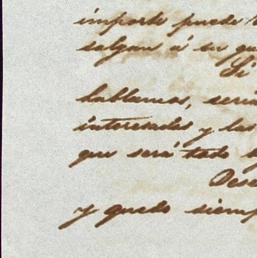 importe puede
salgan á su
Si
hablamos, seria
interesados y las
que será todo
y quedo siemp